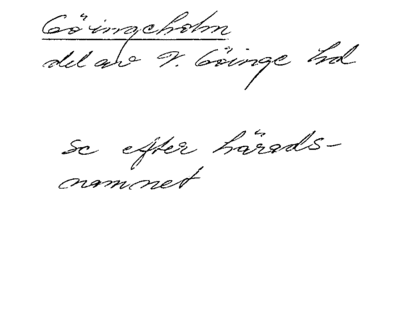 Göingeholm
del av V. Göinge hd
se efter härads-
namnet